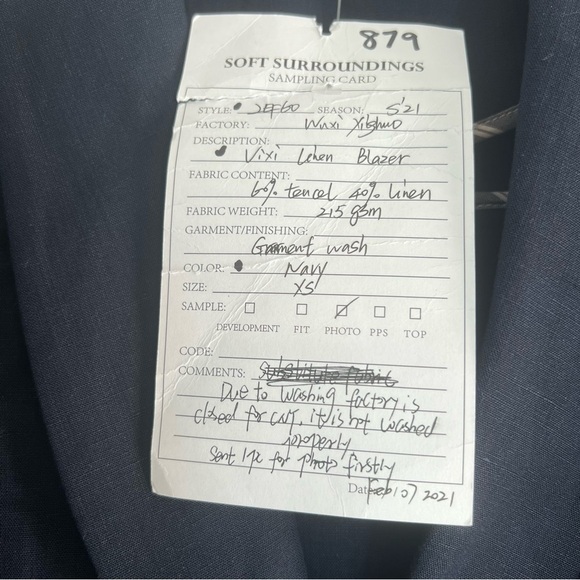 879
SOFT SURROUNDINGS
SAMPLING CARD
STYLE: 2EF60 SEASON: S'21
FACTORY: Wuxi
DESCRIPTION:
Vixi Linen Blazer
FABRIC CONTENT:
60% tencel 40% linen
FABRIC WEIGHT: 215 gsm
GARMENT/FINISHING:
Garment wash
COLOR: Navy
SIZE: XS
SAMPLE:
DEVELOPMENT FIT PHOTO PPS TOP
CODE:
COMMENTS: substitute fabric
Due to washing factory is
closed for CNY, it is not washed
properly
sent 1pc for photo firstly
Date: Feb 07 2021